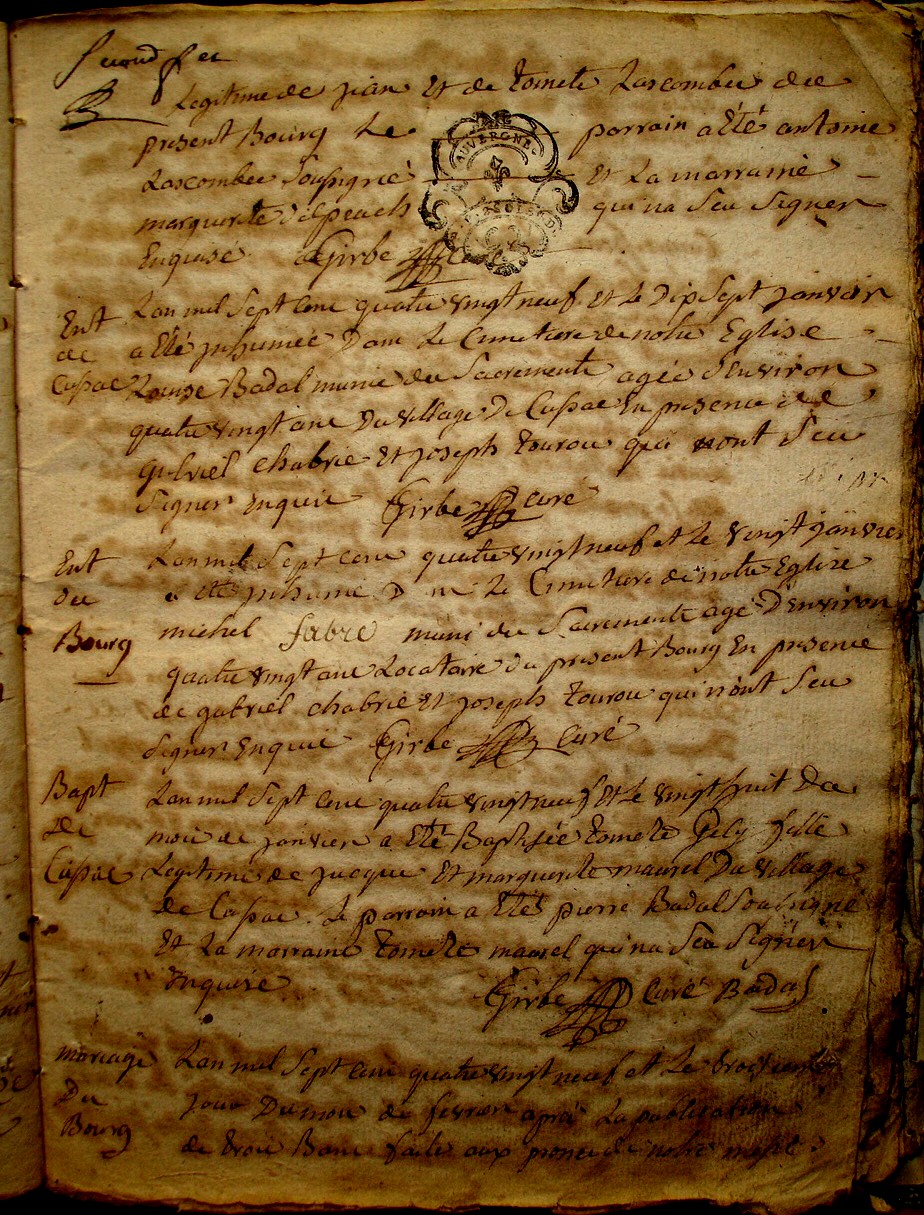 second f et
Legitime de jean Et de tomete Lascombes du
present Bourg Le parrain a Eté antoine
AUVERGNE
Lascombes Soussigné Et La marraine
marguerite delpeach qui na Seu Signer
Enquise Girbe
Ent Lan mil Sept cens quatre vingt neuf Et Le Dix Sept janvier
de a Eté inhumée Dans Le Cimetiere de notre Eglise
Cussac Louise Badal munie des Sacrements agée d'Environ
quatre vingt ans Du village De Cussac En presence de
gabriel chabrie Et joseph tourou qui nont Seu
Signer Enquis Girbe curé
Ent Lan mil Sept cens quatre vingt neuf et Le vingt janvier
du a eté inhumé D ns Le Cimetiere de notre Eglise
Bourg michel fabre muni des Sacrements agé D'Environ
quatre vingt ans Locataire du present Bourg En presence
de gabriel chabrie Et joseph tourou qui n'ont Seu
Signer Enquis Girbe Curé
Bapt Lan mil Sept cens quatre vingt neuf Et Le vingt huit du
de mois de janvier a Eté Baptisée tomete Gely fille
Cussac Legitime de jacques Et marguerite maurel Du village
de Cussac Le parrain a Eté pierre Badal Soussigné
Et La marraine tomete maurel qui na Seu Signer
Enquise Girbe Curé Badal
mariage Lan mil Sept cens quatre vingt neuf et Le troisieme
Du jour Du mois de fevrier aprés La publication
Bourg de trois Bans faite aux prones de notre messe